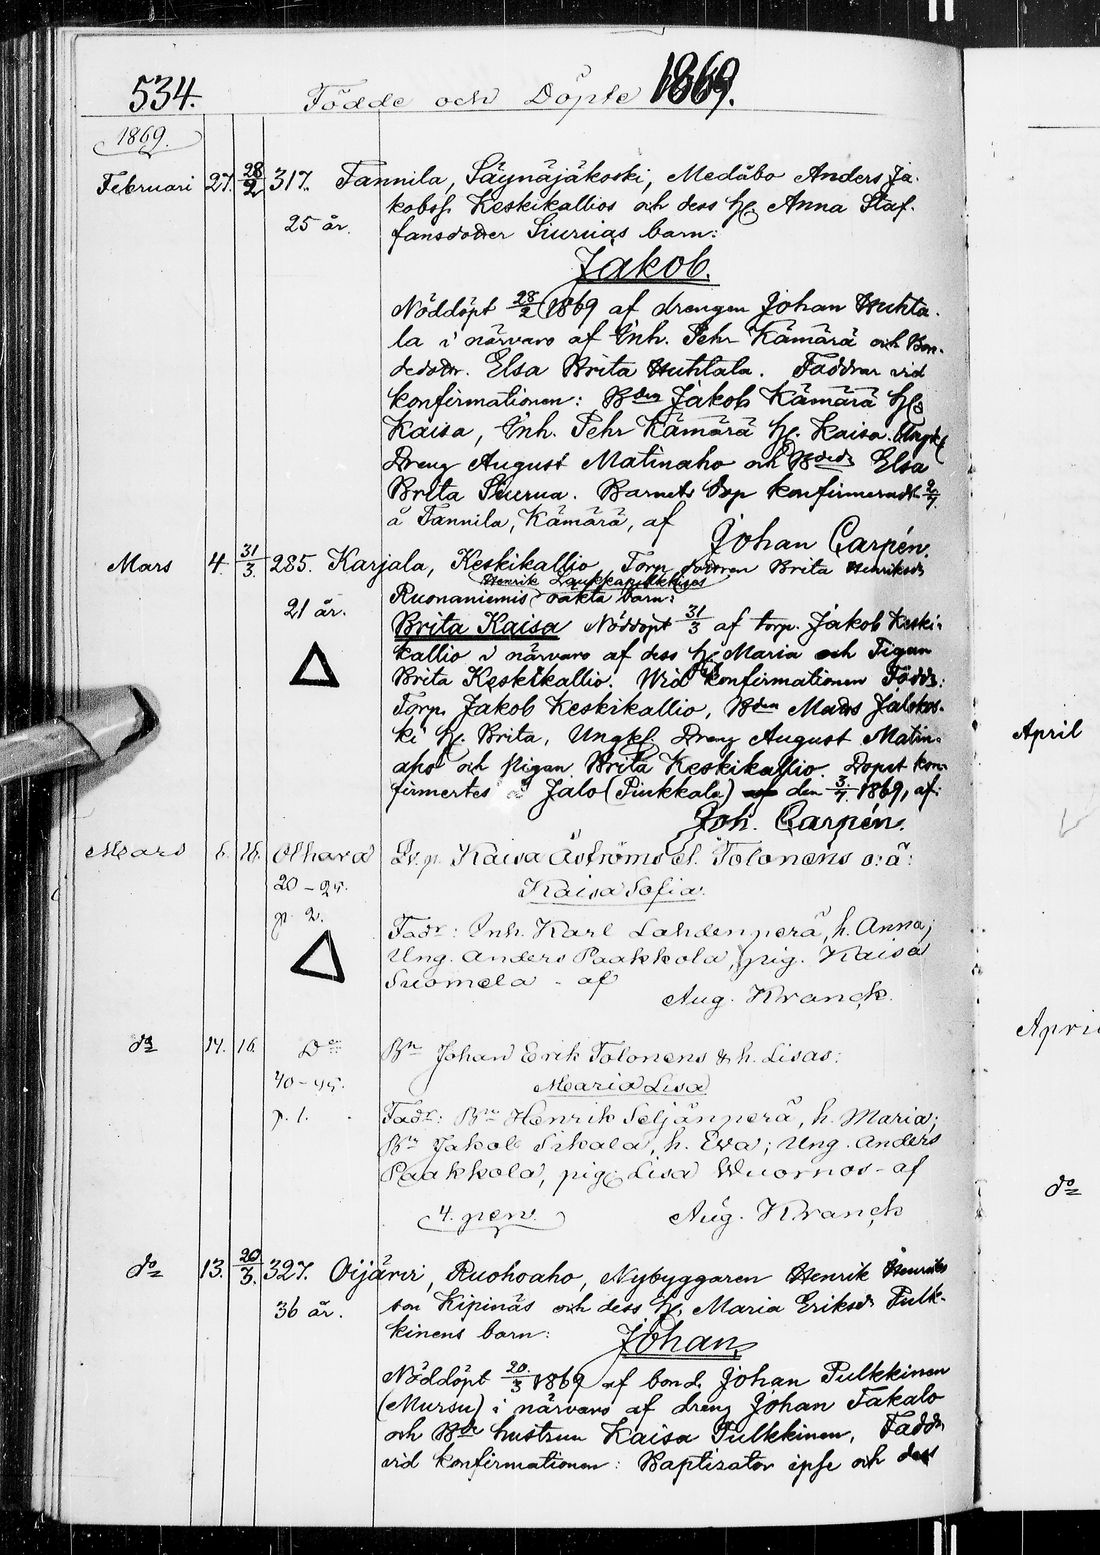 534. Födde och Döpte 1869.
1869.
Februari 27. 28/2 317. Tannila, Säynäjäkoski, Medåbo Anders Ja-
kobss. Keskikallios och dess h. Anna Staf-
25 år. fansdotter Siuruas barn:
Jakob.
Nöddöpt 28/2 1869 af drengen Johan Huhta-
la i närvaro af Inh. Pehr Kämärä och Bon-
dedotr. Elsa Brita Huhtala. Faddrar vid
konfirmationen: Bden Jakob Kämärä h.
Kaisa, Inh. Pehr Kämärä h. Kaisa. Ungk.
Dreng August Matinaho och Elsa
Brita Siurua. Barnets dop konfirmerades
å Tannila, Kämärä, af
Johan Carpén.
Mars 4. 31/3. 285. Karjala, Keskikallio, Torp. dottren Brita Henriksd.
Henrik
Ruonaniemis oäkta barn:
21 år.
Brita Kaisa Nöddöpt 31/3 af torp. Jakob Keski-
kallio i närvaro af dess h. Maria och Pigan
Brita Keskikallio. Wid konfirmationen Faddr:
Torp. Jakob Keskikallio, Bden Mads Jalokos-
ki h. Brita, Ungkl. Dreng August Matin-
aho och Pigan Brita Keskikallio. Dopet kon-
firmertes å Jalo (Piukkala) den 1869, af:
Joh. Carpén.
Mars 6. 16. Olhava Kaisa Åströms el. Tolonens o: ä:
20-25. Kaisa Sofia.
p. 2.
Fadr: Inh. Karl Lahdenperä, h. Anna;
Ung. Anders Paakkola, pig. Kaisa
Suomela - af
Aug. Kranck.
do 14. 16. Do Bn Johan Erik Tolonens & h. Lisas:
40-45. Maria Lisa
p. 1. Fadr: Bn Henrik Seljänperä, h. Maria;
Bn Jakob Sikala, h. Eva; Ung. Anders
Paakkola, pig. Lisa Wuornos - af
4. pers. Aug. Kranck
do 13. 20/3. 327. Oijärvi, Ruohoaho, Nybyggaren Henrik Henriks-
36 år. son Kipinäs och dess h. Maria Eriksd. Pulk-
kinens barn: Johan,
Nöddöpt 20/3 1869 af bond. Johan Pulkkinen
(Mursu) i närvaro af dreng Johan Takalo
och Bde hustrun Kaisa Pulkkinen, Faddr.
vid konfirmationen: Baptisator ipse och dess
April
April
do